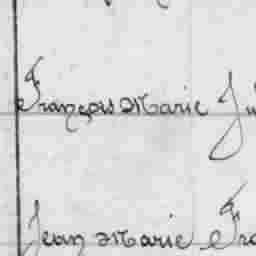 François Marie Ju
Jean Marie Fra